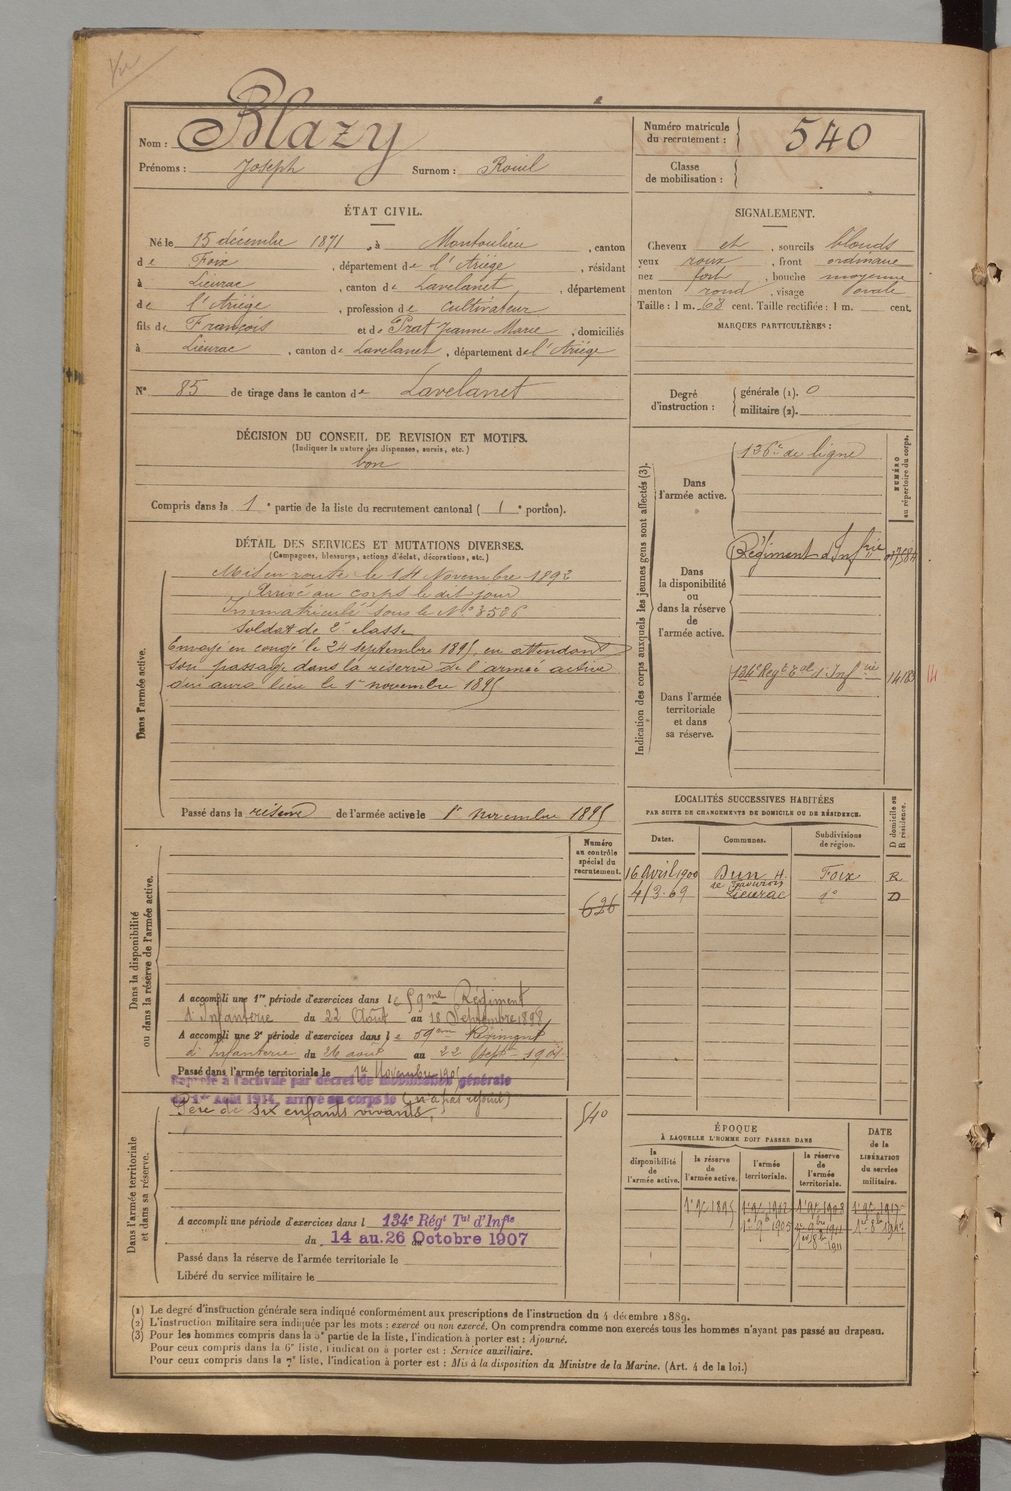 Nom : Blazy
Prénoms : Joseph Surnom : Rouil
Numéro matricule du recrutement : 540
Classe de mobilisation :
ÉTAT CIVIL.
Né le 15 décembre 1871, à Montoulieu, canton
de Foix, département de l'Ariège, résidant
à Lieurac, canton de Lavelanet, département
de l'Ariège, profession de cultivateur
fils de François et de Prat Jeanne Marie, domiciliés
à Lieurac, canton de Lavelanet, département de l'Ariège
N° 85 de tirage dans le canton de Lavelanet
SIGNALEMENT.
Cheveux et, sourcils blonds
yeux roux, front ordinaire
nez fort, bouche moyenne
menton rond, visage ovale
Taille : 1 m. 68 cent. Taille rectifiée : 1 m. cent.
MARQUES PARTICULIÈRES :
Degré d'instruction : générale (1). 0
militaire (2).
DÉCISION DU CONSEIL DE REVISION ET MOTIFS.
(Indiquer la nature des dispenses, sursis, etc.)
bon
Compris dans la 1e partie de la liste du recrutement cantonal ( 1e portion).
DÉTAIL DES SERVICES ET MUTATIONS DIVERSES.
(Campagnes, blessures, actions d'éclat, décorations, etc.)
Dans l'armée active.
Mis en route le 14 Novembre 1892
Arrivé au corps le dit jour
Immatriculé sous le N° 3506
Soldat de 2e classe
Envoyé en congé le 24 septembre 1895, en attendant
son passage dans la réserve de l'armée active
qui aura lieu le 1er novembre 1895
Passé dans la réserve de l'armée active le 1er novembre 1895
Indication des corps auxquels les jeunes gens sont affectés (3).
NUMÉRO au répertoire du corps.
Dans l'armée active.
136e de ligne
Dans la disponibilité ou dans la réserve de l'armée active.
Régiment d'Infrie
Dans l'armée territoriale et dans sa réserve.
134e Regt Eal d'Infrie
LOCALITÉS SUCCESSIVES HABITÉES
PAR SUITE DE CHANGEMENTS DE DOMICILE OU DE RÉSIDENCE.
Dates. Communes. Subdivisions de région. D domicile ou R résidence.
16 Avril 1900 Dun Foix R
Lieurac do D
Dans la disponibilité ou dans la réserve de l'armée active.
Numéro au contrôle spécial du recrutement.
626
A accompli une 1re période d'exercices dans le 59me Régiment
d'Infanterie du 22 Août au 18 Septembre 1898
A accompli une 2e période d'exercices dans le 59eme Régiment
d'Infanterie du 26 août au 22 Septe 1901
Passé dans l'armée territoriale le 1er Novembre 1905
Rappelé à l'activité par décret de mobilisation générale
du 1er Août 1914, arrivé au corps le (n'a pas rejoint)
Père de six enfants vivants,
540
Dans l'armée territoriale et dans sa réserve.
A accompli une période d'exercices dans l 134e Régt Tal d'Infie
du 14 au 26 Octobre 1907
Passé dans la réserve de l'armée territoriale le
Libéré du service militaire le
ÉPOQUE
À LAQUELLE L'HOMME DOIT PASSER DANS
la disponibilité de l'armée active.
la réserve de l'armée active.
l'armée territoriale.
la réserve de l'armée territoriale.
DATE de la LIBÉRATION du service militaire.
(1) Le degré d'instruction générale sera indiqué conformément aux prescriptions de l'instruction du 4 décembre 1889.
(2) L'instruction militaire sera indiquée par les mots : exercé ou non exercé. On comprendra comme non exercés tous les hommes n'ayant pas passé au drapeau.
(3) Pour les hommes compris dans la 5e partie de la liste, l'indication à porter est : Ajourné.
Pour ceux compris dans la 6e liste, l'indication à porter est : Service auxiliaire.
Pour ceux compris dans la 7e liste, l'indication à porter est : Mis à la disposition du Ministre de la Marine. (Art. 4 de la loi.)